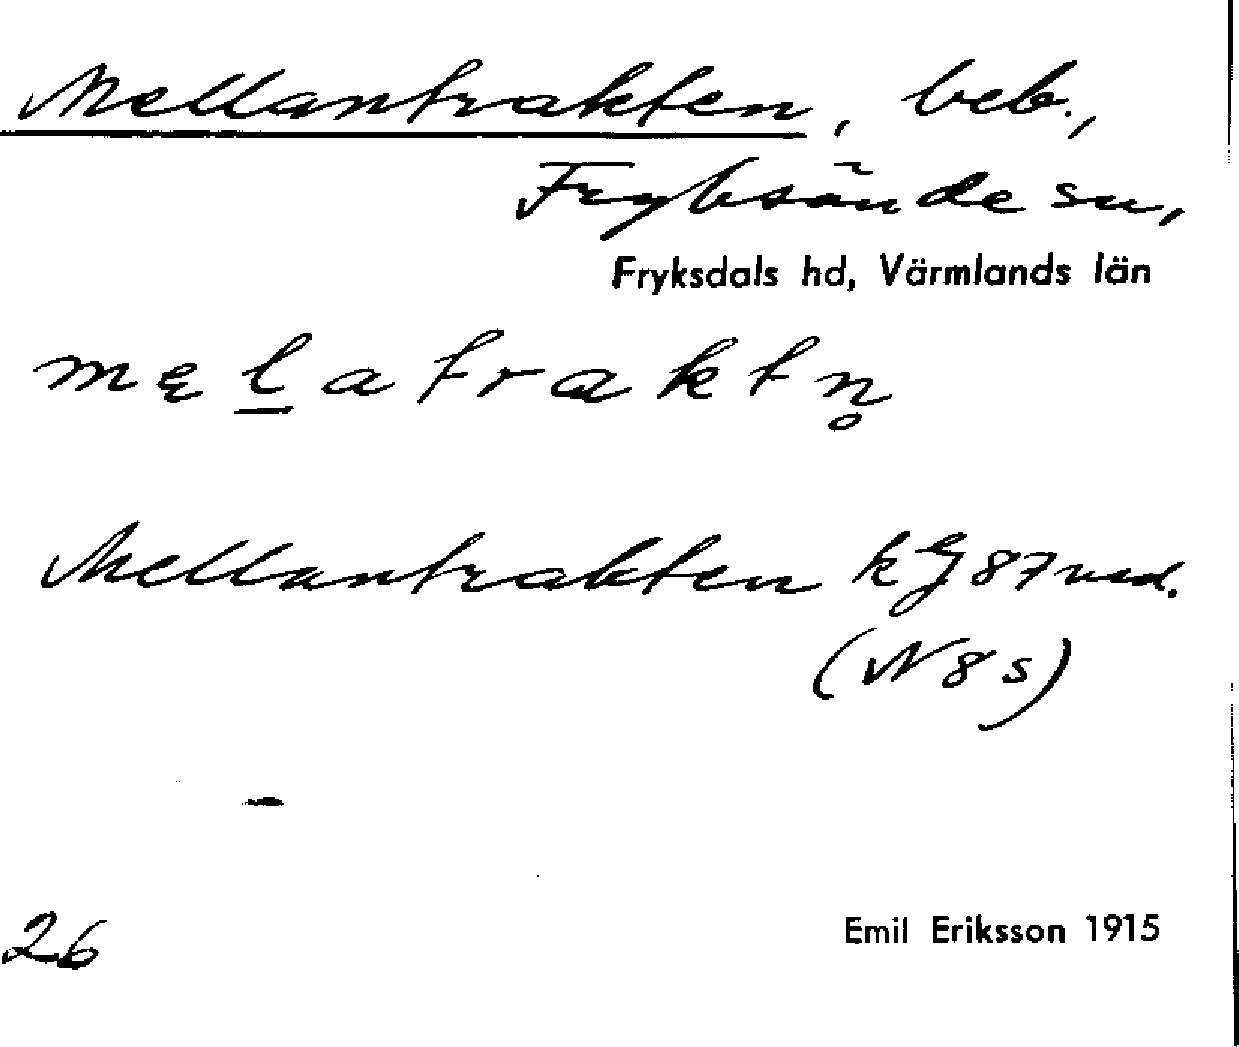 Mellantrakten, beb.,
Fryksände sn,
Fryksdals hd, Värmlands län
męl̲atraktn̥
Mellantrakten
(N 8 s)
26
Emil Eriksson 1915